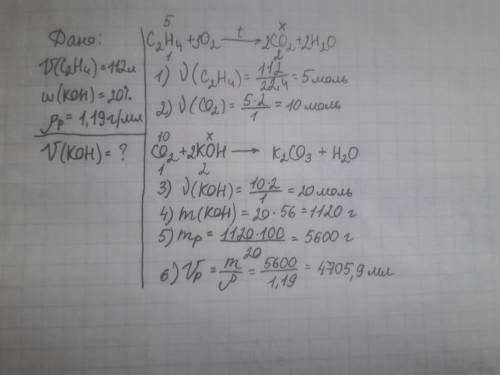 Дано:
V(C₂H₄)=112л
ω(KOH)=20%
ρр=1,19г/мл
V(KOH)=?
5 x
C₂H₄+3O₂ —t→ 2CO₂+2H₂O
1 2
1) ν(C₂H₄)=112/22,4=5моль
2) ν(CO₂)=5·2/1=10 моль
10 x
CO₂+2KOH → K₂CO₃+H₂O
1 2
3) ν(KOH)=10·2/1=20моль
4) m(KOH)=20·56=1120 г
5) mр=1120·100/20=5600г
6) Vр=m/ρ=5600/1,19=4705,9 мл